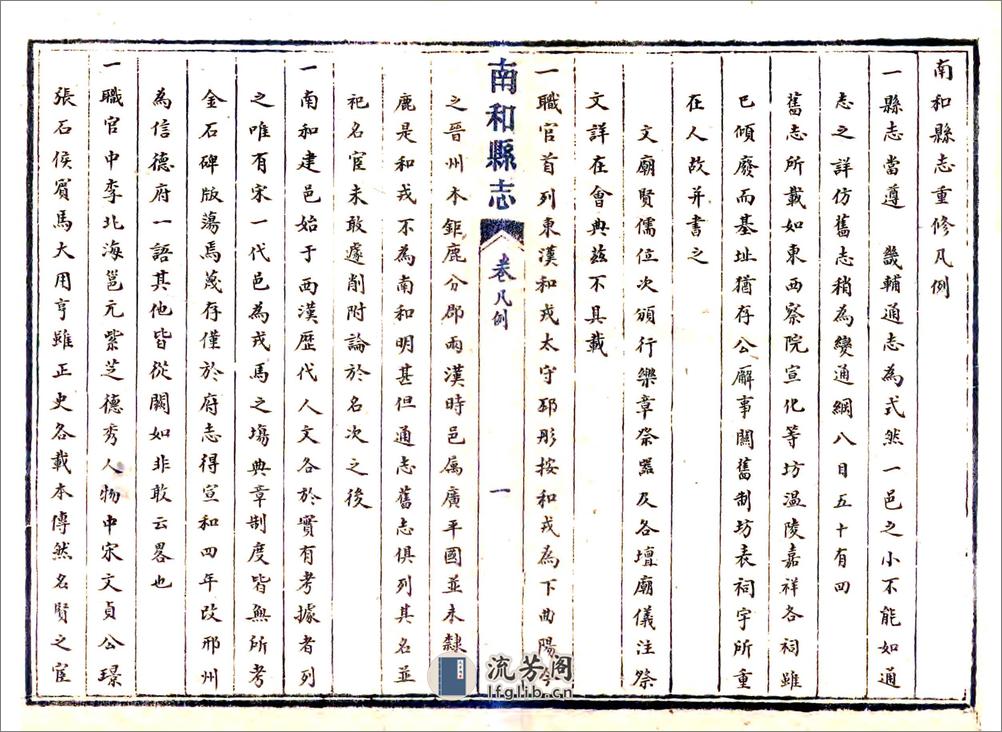 南和縣志重修凡例
一縣志當遵　畿輔通志為式然一邑之小不能如通
志之詳仿舊志稍為變通綱八目五十有四
舊志所載如東西察院宣化等坊溫陵嘉祥各祠雖
已傾廢而基址猶存公廨事關舊制坊表祠宇所重
在人故并書之
文廟賢儒位次頒行樂章祭器及各壇廟儀注祭
文詳在會典茲不具載
一職官首列東漢和戎太守邳彤按和戎為下曲陽今
南和縣志
卷凡例
一
之晉州本鉅鹿分郡兩漢時邑属廣平國並未隸
鹿是和戎不為南和明甚但通志舊志俱列其名並
祀名宦未敢遽削附論於名次之後
一南和建邑始于西漢歷代人文各於實有考據者列
之唯有宋一代邑為戎馬之塲典章制度皆無所考
金石碑版蕩焉蔑存僅於府志得宣和四年改邢州
為信德府一語其他皆從闕如非敢云畧也
一職官中李北海邕元紫芝德秀人物中宋文貞公璟
張石侯賓馬大用亨雖正史各載本傳然名賢之宦
流芳阁
lfglib.cn